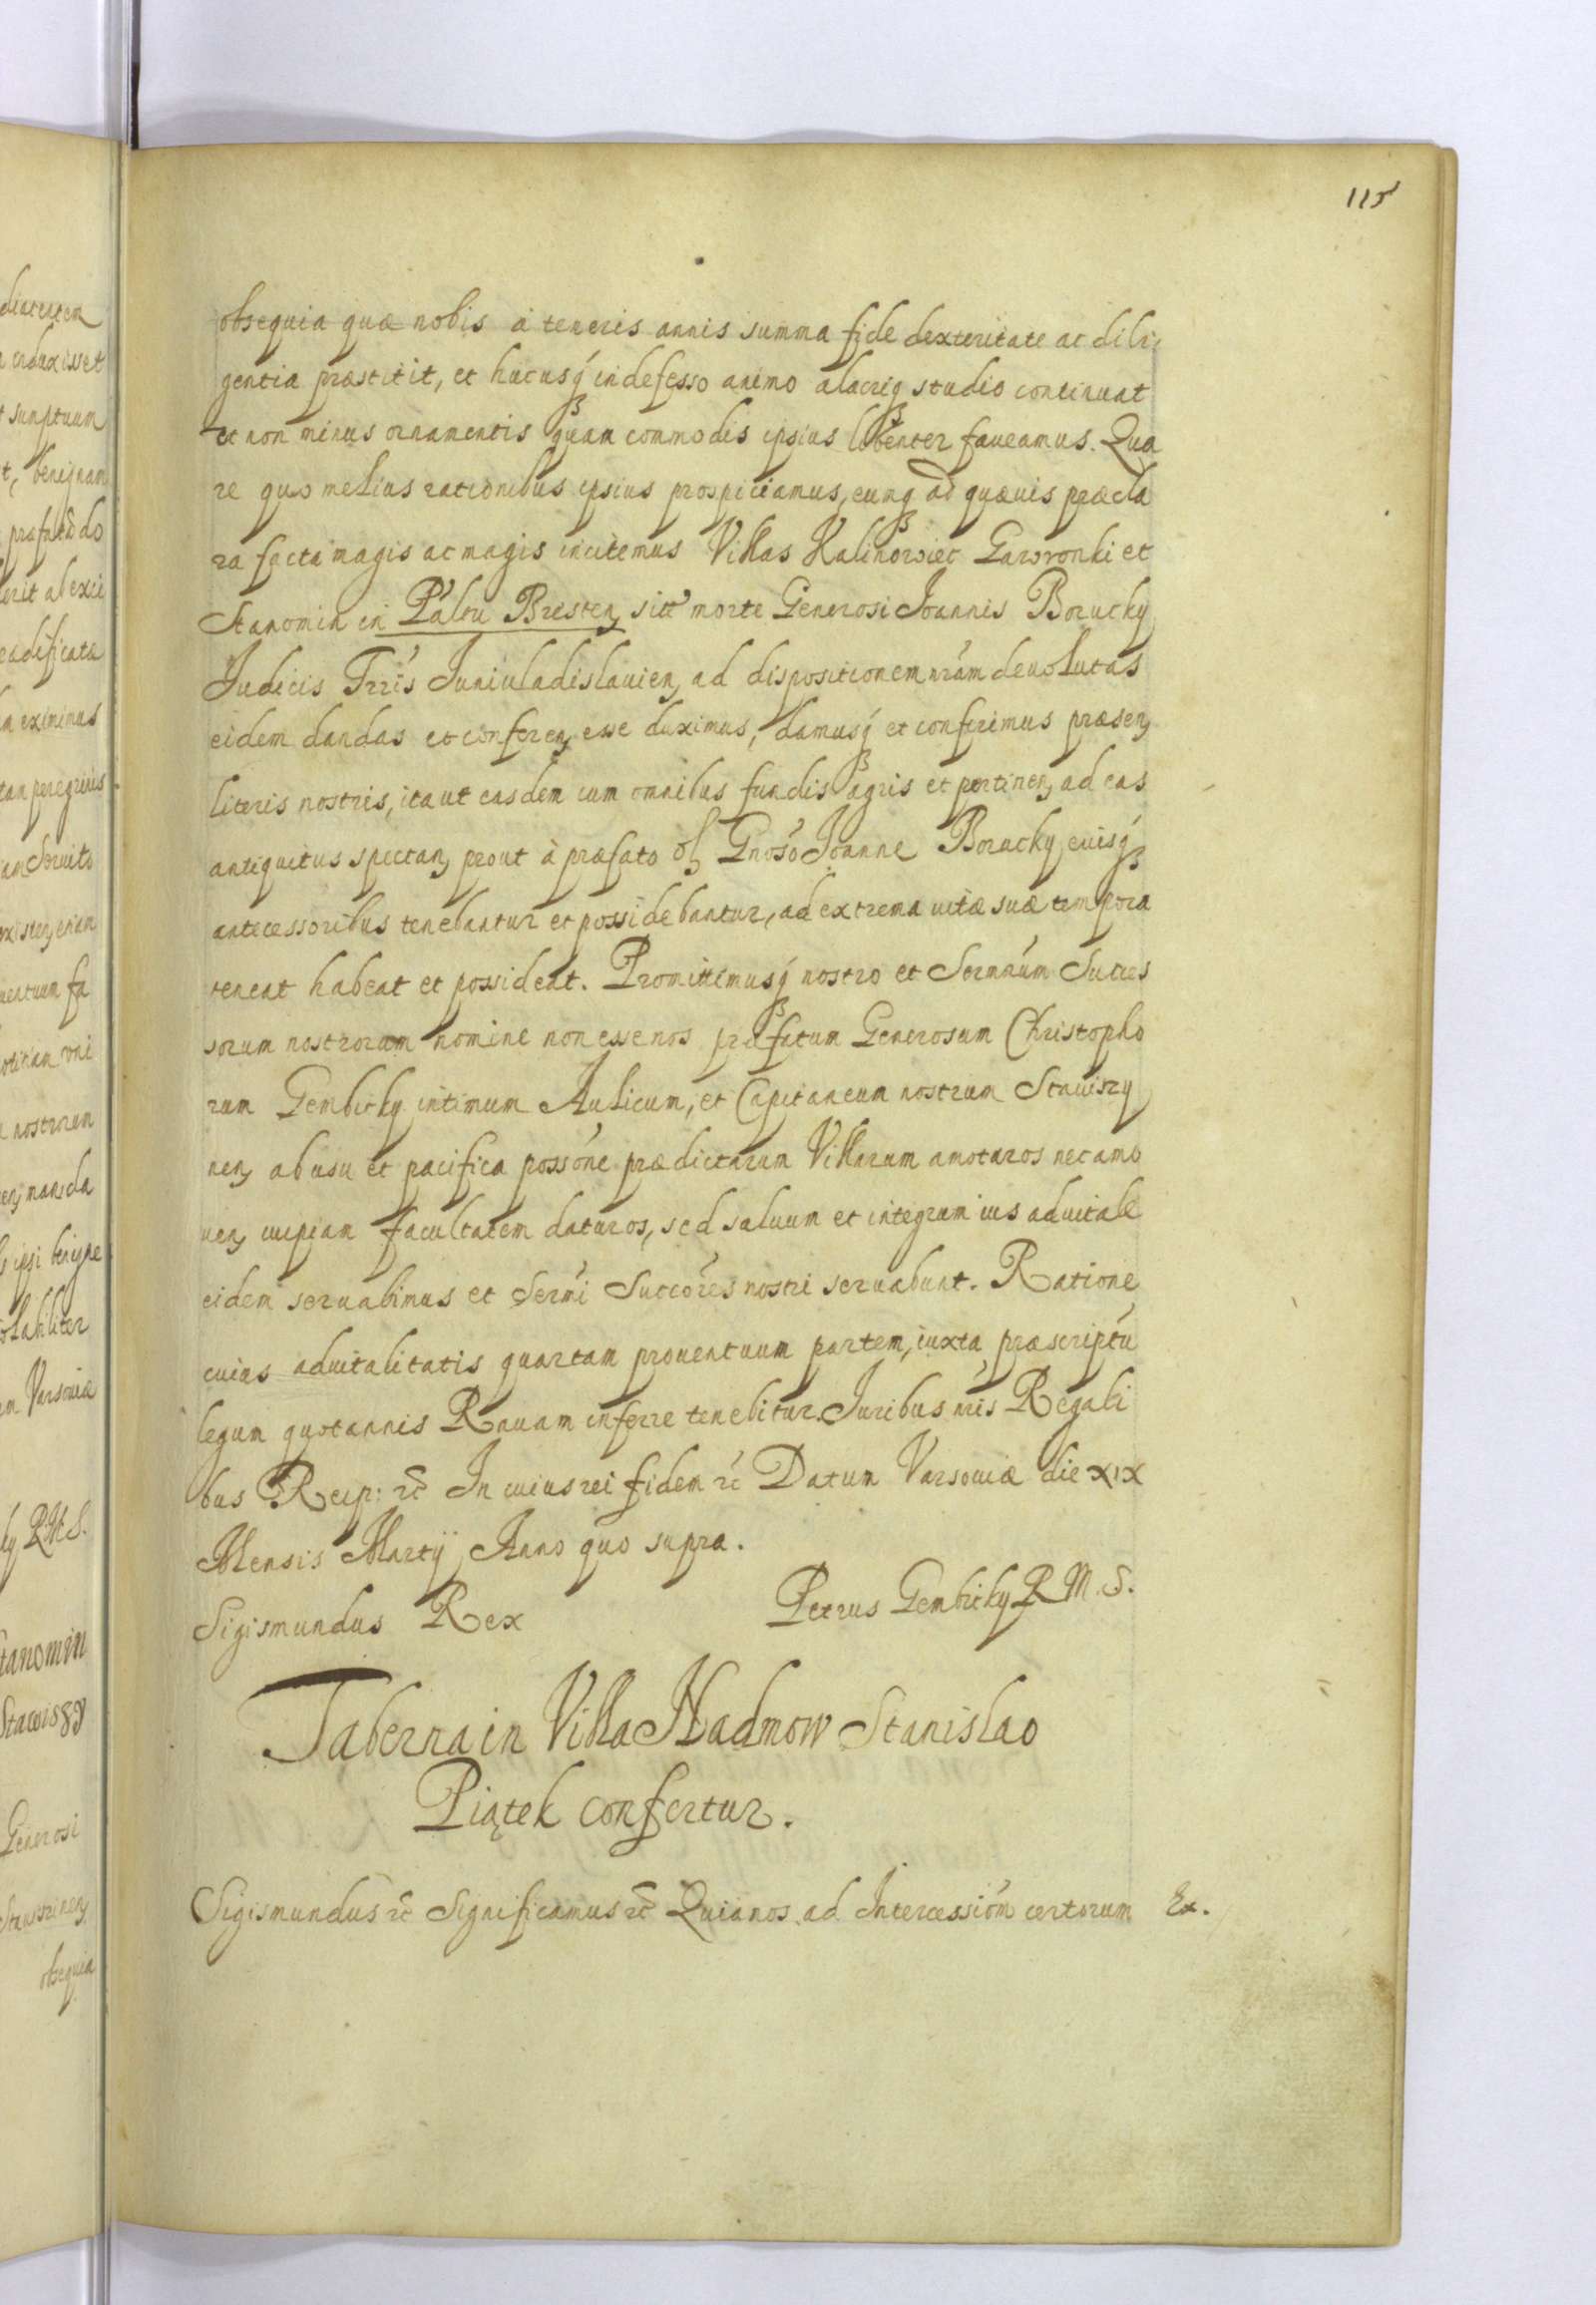 115
obsequia quæ nobis à teneris annis summa fide dexteritate ac dili
gentia præstitit, et hucusq́ indefesso animo alacriq studio continuat
et non minus ornamentis quam commodis ipsius libenter faueamus. Qua
re quo melius rationibus ipsius prospiciamus, eumq ad quæuis præcla
ra facta magis ac magis incitemus Villas Kalinowiec Gawronki et
Stanomin in Páltu Bresten, sitt morte Generosi Joannis Borucky
Judicis Trrís Juniuladislauien, ad dispositionem nrám deuolutas
eidem dandas et conferen, esse duximus, damusq́ et conferimus præsen,
literis nostris, ita ut easdem cum omnibus fundis agris et pertinen, ad eas
antiquitus spectan, prout à præfato ol, Gnósó Joanne Borucky, euisq́
antecessoribus tenebantur et possidebantur, ad extrema uitæ suæ tempora
teneat habeat et possideat. Promittimusq́ nostro et Sermnúm Succes
sorum nostrorum nomine non esse nos præfatum Generosum Christopho
rum Gembicky intimum Aulicum, et Capitaneum nostrum Stawiszy
nen, ab usu et pacifica possóne prædictarum Villarum amoturos nec amo
uen, cuipiam facultatem daturos, sed saluum et integrum ius aduitale
eidem seruabimus et Sermí Succóres nostri seruabunt. Ratione
cuius aduitalitatis quartam prouentuum partem, iuxta præscriptú
legum quotannis Rauam inferre tenebitur. Juribus nrís Regali
bus Reip: ꝛc̃ In cuius rei fidem ꝛc̃ Datum Varsouiæ die XIX
Mensis Martij Anno quo supra.
Sigismundus Rex Petrus Gembicky R. M. S.
Taberna in Villa Hadmow Stanislao
Piątek confertur.
Sigismundus ꝛc̃ Significamus ꝛc̃ Quia nos ad Intercessióm certorum Ex.